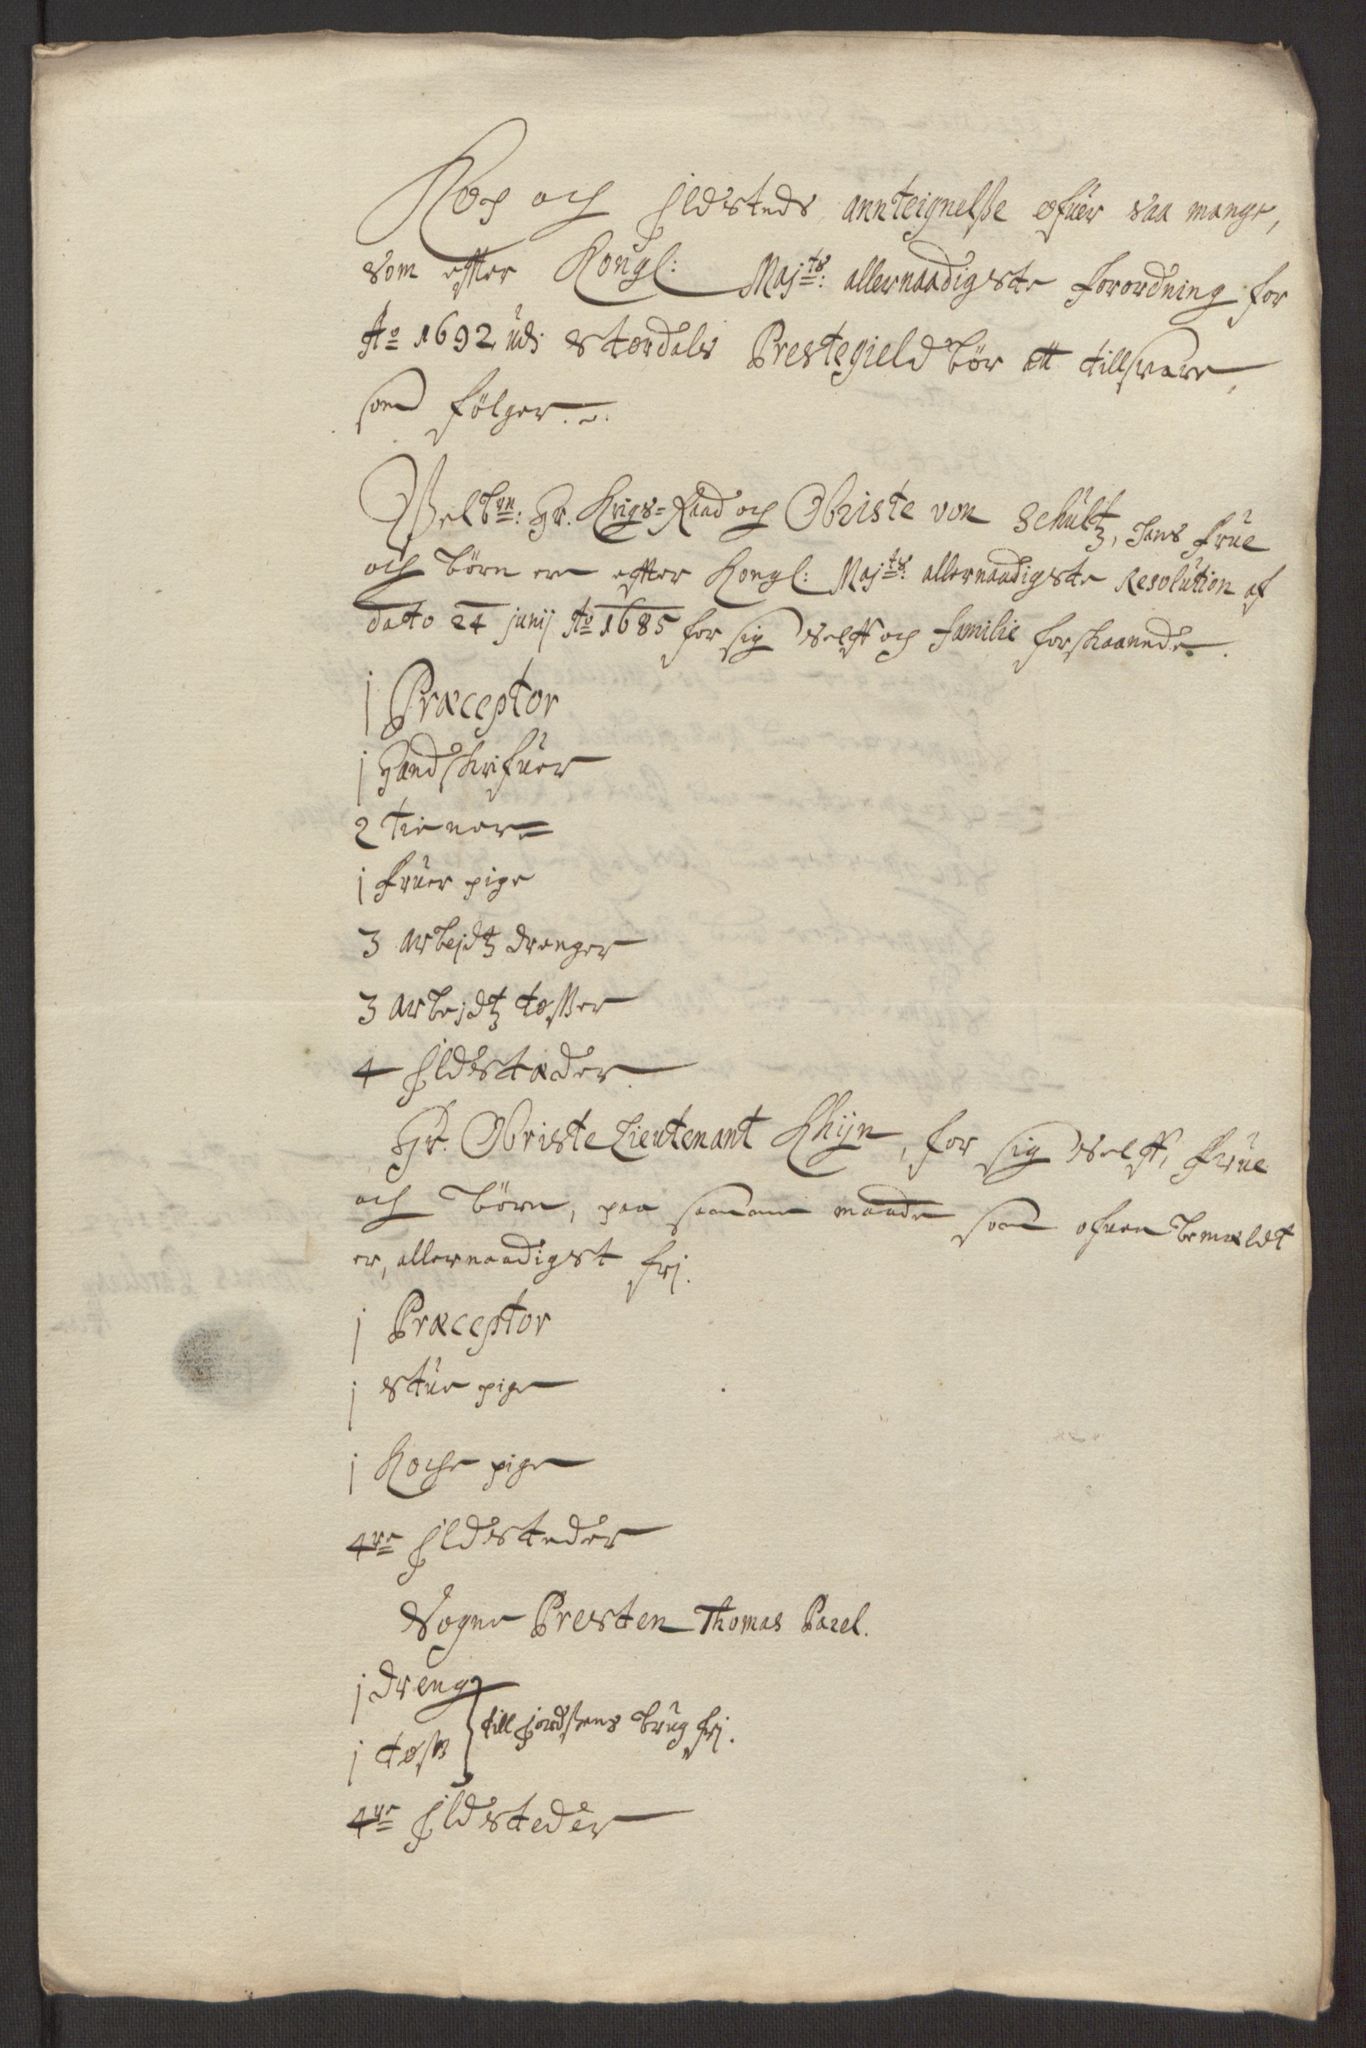 Kop och Jldsteds annteignelsse ofuer saa mange,
som effter Kongl: Majts: allernaadigste forordning for
Ao 1692 udj Størdals Prestegield bør att tillsvare,
som følger.
Welbrn: Hr. Krigs-Raad och Obriste von Schultz, hans frue
och børn ere effter Kongl: Majts: allernaadigste Resolution af
dato 24 junij Ao 1685 for sig self och familie forskaanede.
j Præceptor
j Handskrifuer
2 tienere
j fruer pige
3 arbejdtz drenger
3 arbejdtz tøsser
4 Jldstæder
Hr. Obriste Lieutenant Khijn, for sig self, frue
och børn, paa samme maade som ofuen bemældt
er, allernaadigst frj.
j Præceptor
j stue pige
j Koche pige
4re Jldsteder
Sogne Presten Thomas Parel.
j dreng
j tøss } till jordssens brug frj.
4re Jldsteder